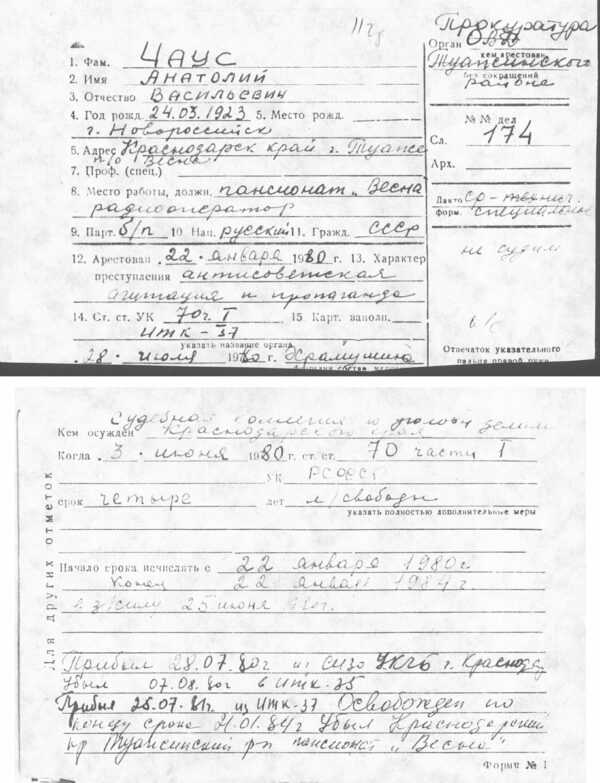 11г
Прокуратура
Орган ОВД
кем арестован
Туапсинского
без сокращений
района
1. Фам. ЧАУС
2. Имя АНАТОЛИЙ
3. Отчество ВАСИЛЬЕВИЧ
4. Год рожд. 24.03.1923 5. Место рожд.
г. Новороссийск
6. Адрес Краснодарск край г. Туапсе
п/о Весна
7. Проф. (спец.)
8. Место работы, должн. пансионат „Весна"
радиооператор
9. Парт. б/п 10 Нац. русский 11. Гражд. СССР
№№ дел
Сл. 174
Арх.
ср-технич.
форм. специальное
12. Арестован 22. января 1980 г. 13. Характер
преступления антисоветская
агитация и пропаганда
14. Ст. ст. УК 70 ч I 15. Карт. заполн.
ИТК-37
указать название органа
28. июля 1980 г. Храмушина
не судим
Отпечаток указательного
пальца правой руки
Судебная коллегия по уголовн делам
Кем осужден Краснодарского края
Когда . 3. июня 1980 г. ст. ст. 70 части I
УК РСФСР
срок четыре лет л/свободы
указать полностью дополнительные меры
Для других отметок
Начало срока исчислять с 22 января 1980г.
Конец 22 января 1984г.
в з/силу 25 июня 80г.
Прибыл 28.07.80г из СИЗО УКГБ г. Краснод
Убыл 07.08.80г в ИТК-35
Прибыл 25.07.81г. из ИТК-37 Освобожден по
концу срока 21.01.84г Убыл Краснодарский
кр Туапсинский рн пансионат „Весна"
Форма № 1